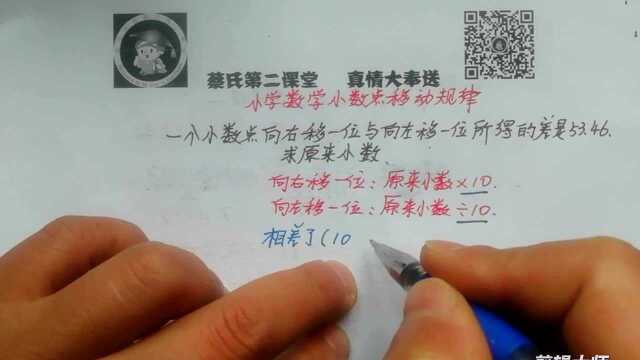 蔡氏第二课堂 真情大奉送
小学数学小数点移动规律
一个小数点向右移一位与向左移一位所得的差是53.46.
求原来小数.
向右移一位：原来小数×10.
向左移一位：原来小数÷10.
相差了(10
剪辑大师